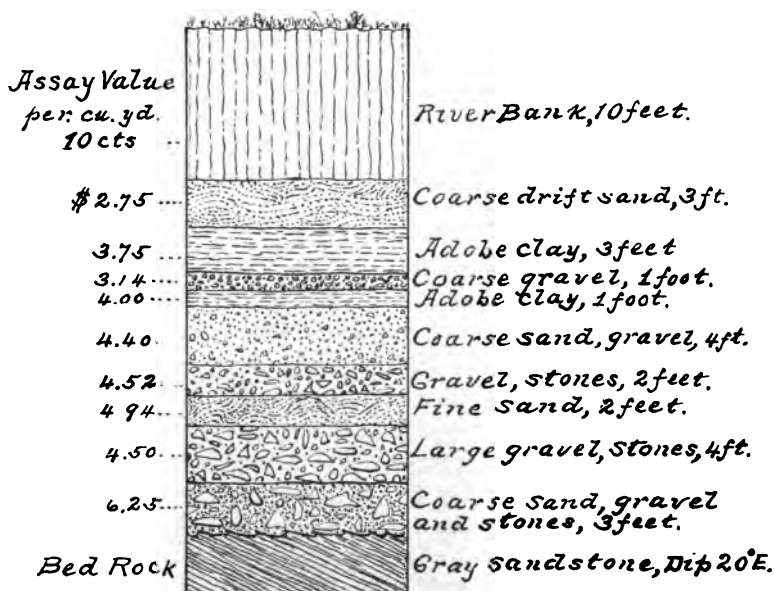 Assay Value
per. cu. yd.
10 cts
River Bank, 10 feet.
$2.75
Coarse drift sand, 3 ft.
3.75
Adobe clay, 3 feet
3.14
Coarse gravel, 1 foot.
4.00
Adobe clay, 1 foot.
4.40
Coarse sand, gravel, 4 ft.
4.52
Gravel, stones, 2 feet.
4 94
Fine sand, 2 feet.
4.50
Large gravel, stones, 4 ft.
6.25
Coarse sand, gravel
and stones, 3 feet.
Bed Rock
Gray sandstone, Dip 20°E.